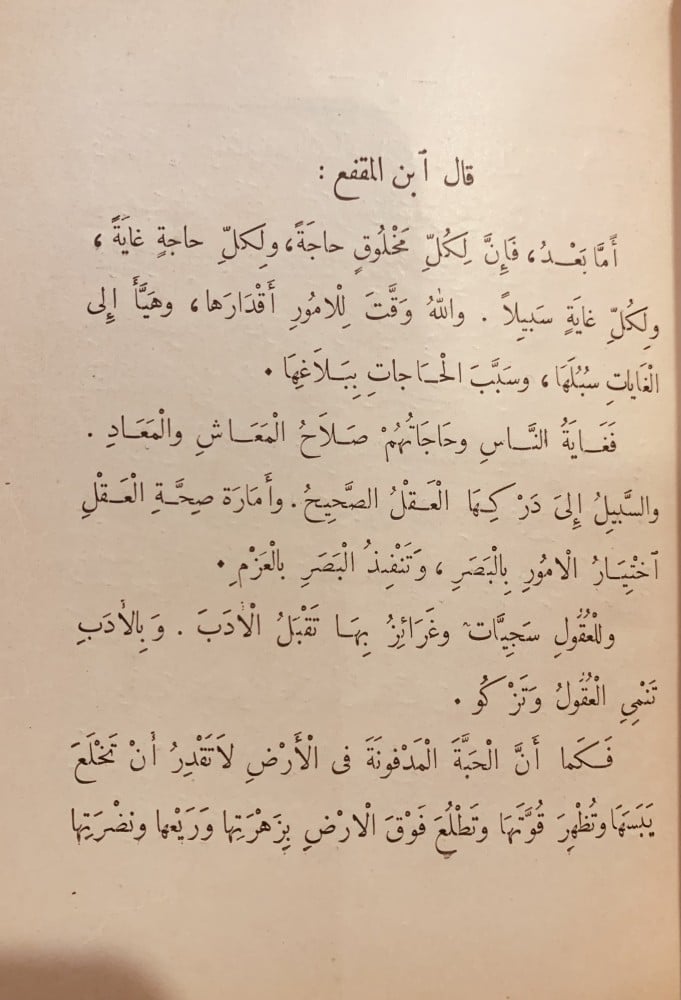 قال ٱبن المقفع :
أَمَّا بَعْـدُ، فَإِنَّ لِكُلِّ مَخْلُوقٍ حاجَةً، ولِكلِّ حاجةٍ غايَةً،
ولِكُلِّ غايَةٍ سَبِيلاً . واللهُ وَقَّتَ لِلْامُورِ أَقْدَارَها، وهَيَّأَ إِلى
الْغَاياتِ سُبُلَهَا، وسَبَّبَ الْحَـاجاتِ بِبَـلَاغِهَا .
فَغَـايَةُ النَّـاسِ وحَاجَاتُهُمْ صَـلَاحُ الْمَعَـاشِ والْمَعَـادِ .
والسَّبِيلُ إِلىَ دَرْكِـهَا الْعَـقْلُ الصَّحِيحُ . وأَمَارَة صِحَّـةِ الْعَـقْلِ
ٱخْتِيَـارُ الْامُورِ بِالْبَصَرِ، وَتَنْفِيذُ الْبَصَرِ بالْعَزْمِ .
وللْعُقُولِ سَجِيَّات وغَرَائِزُ بِهَـا تَقْبَلُ الْأَدَبَ . وَبِالْأَدَبِ
تَنْمِي الْعُقُولُ وَتَزْكُو .
فَـكَما أَنَّ الْحَبَّةَ الْمَدْفُونَةَ فى الْأَرْضِ لاَتَقْدِرُ أَنْ تَخْلَعَ
يَبَسَهَا وتُظْهِرَ قُوَّتَهَا وتَطْلُعَ فَوْقَ الْارْضِ بِزَهْرَتِها وَرَيْعها ونضْرَتِها